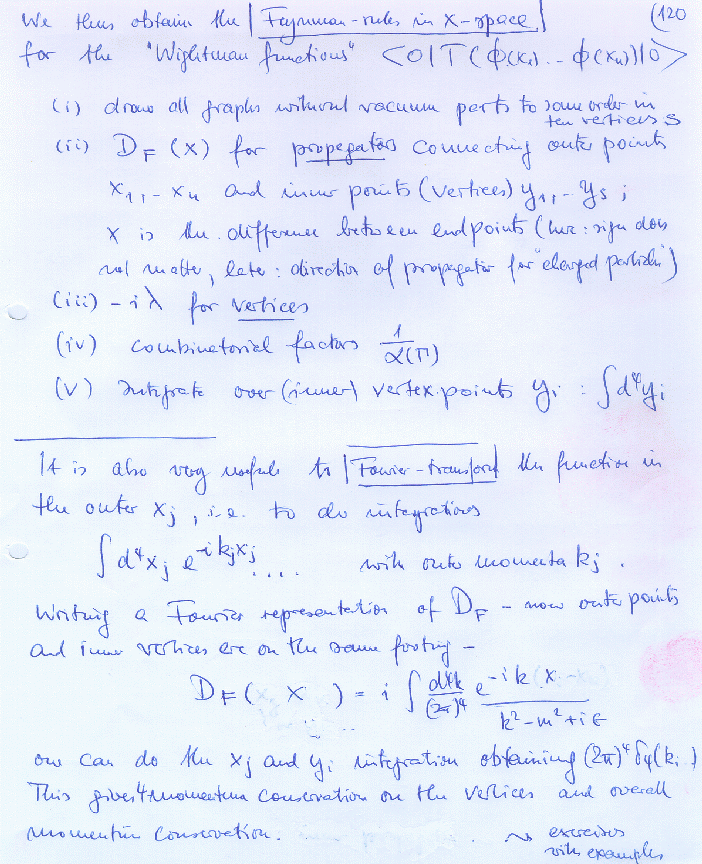 (120
We thus obtain the Feynman-rules in x-space
for the "Wightman functions" <0|T(ϕ(x₁)..ϕ(xₙ))|0>
(i) draw all graphs without vacuum parts to some order in
ten vertices s
(ii) D_F (x) for propagators connecting outer points
x₁,..xₙ and inner points (vertices) y₁,..y_s ;
x is the difference between endpoints (here: sign does
not matter, later: direction of propagator for "charged particles")
(iii) -iλ for vertices
(iv) combinatorial factors 1/α(Γ)
(v) Integrate over (inner) vertex points y_i : ∫d⁴y_i
It is also very useful to Fourier-transform the function in
the outer x_j, i.e. to do integrations
∫d⁴x_j e^{-ik_jx_j} .... with outer momenta k_j .
Writing a Fourier representation of D_F - now outer points
and inner vertices are on the same footing -
D_F( x ) = i ∫ d⁴k/(2π)⁴ e^{-ik(x}/(k²-m²+iε)
one can do the x_j and y_i integration obtaining (2π)⁴δ₄(k_i )
This gives 4momentum conservation on the vertices and overall
momentum conservation. ⤳ exercises
with examples